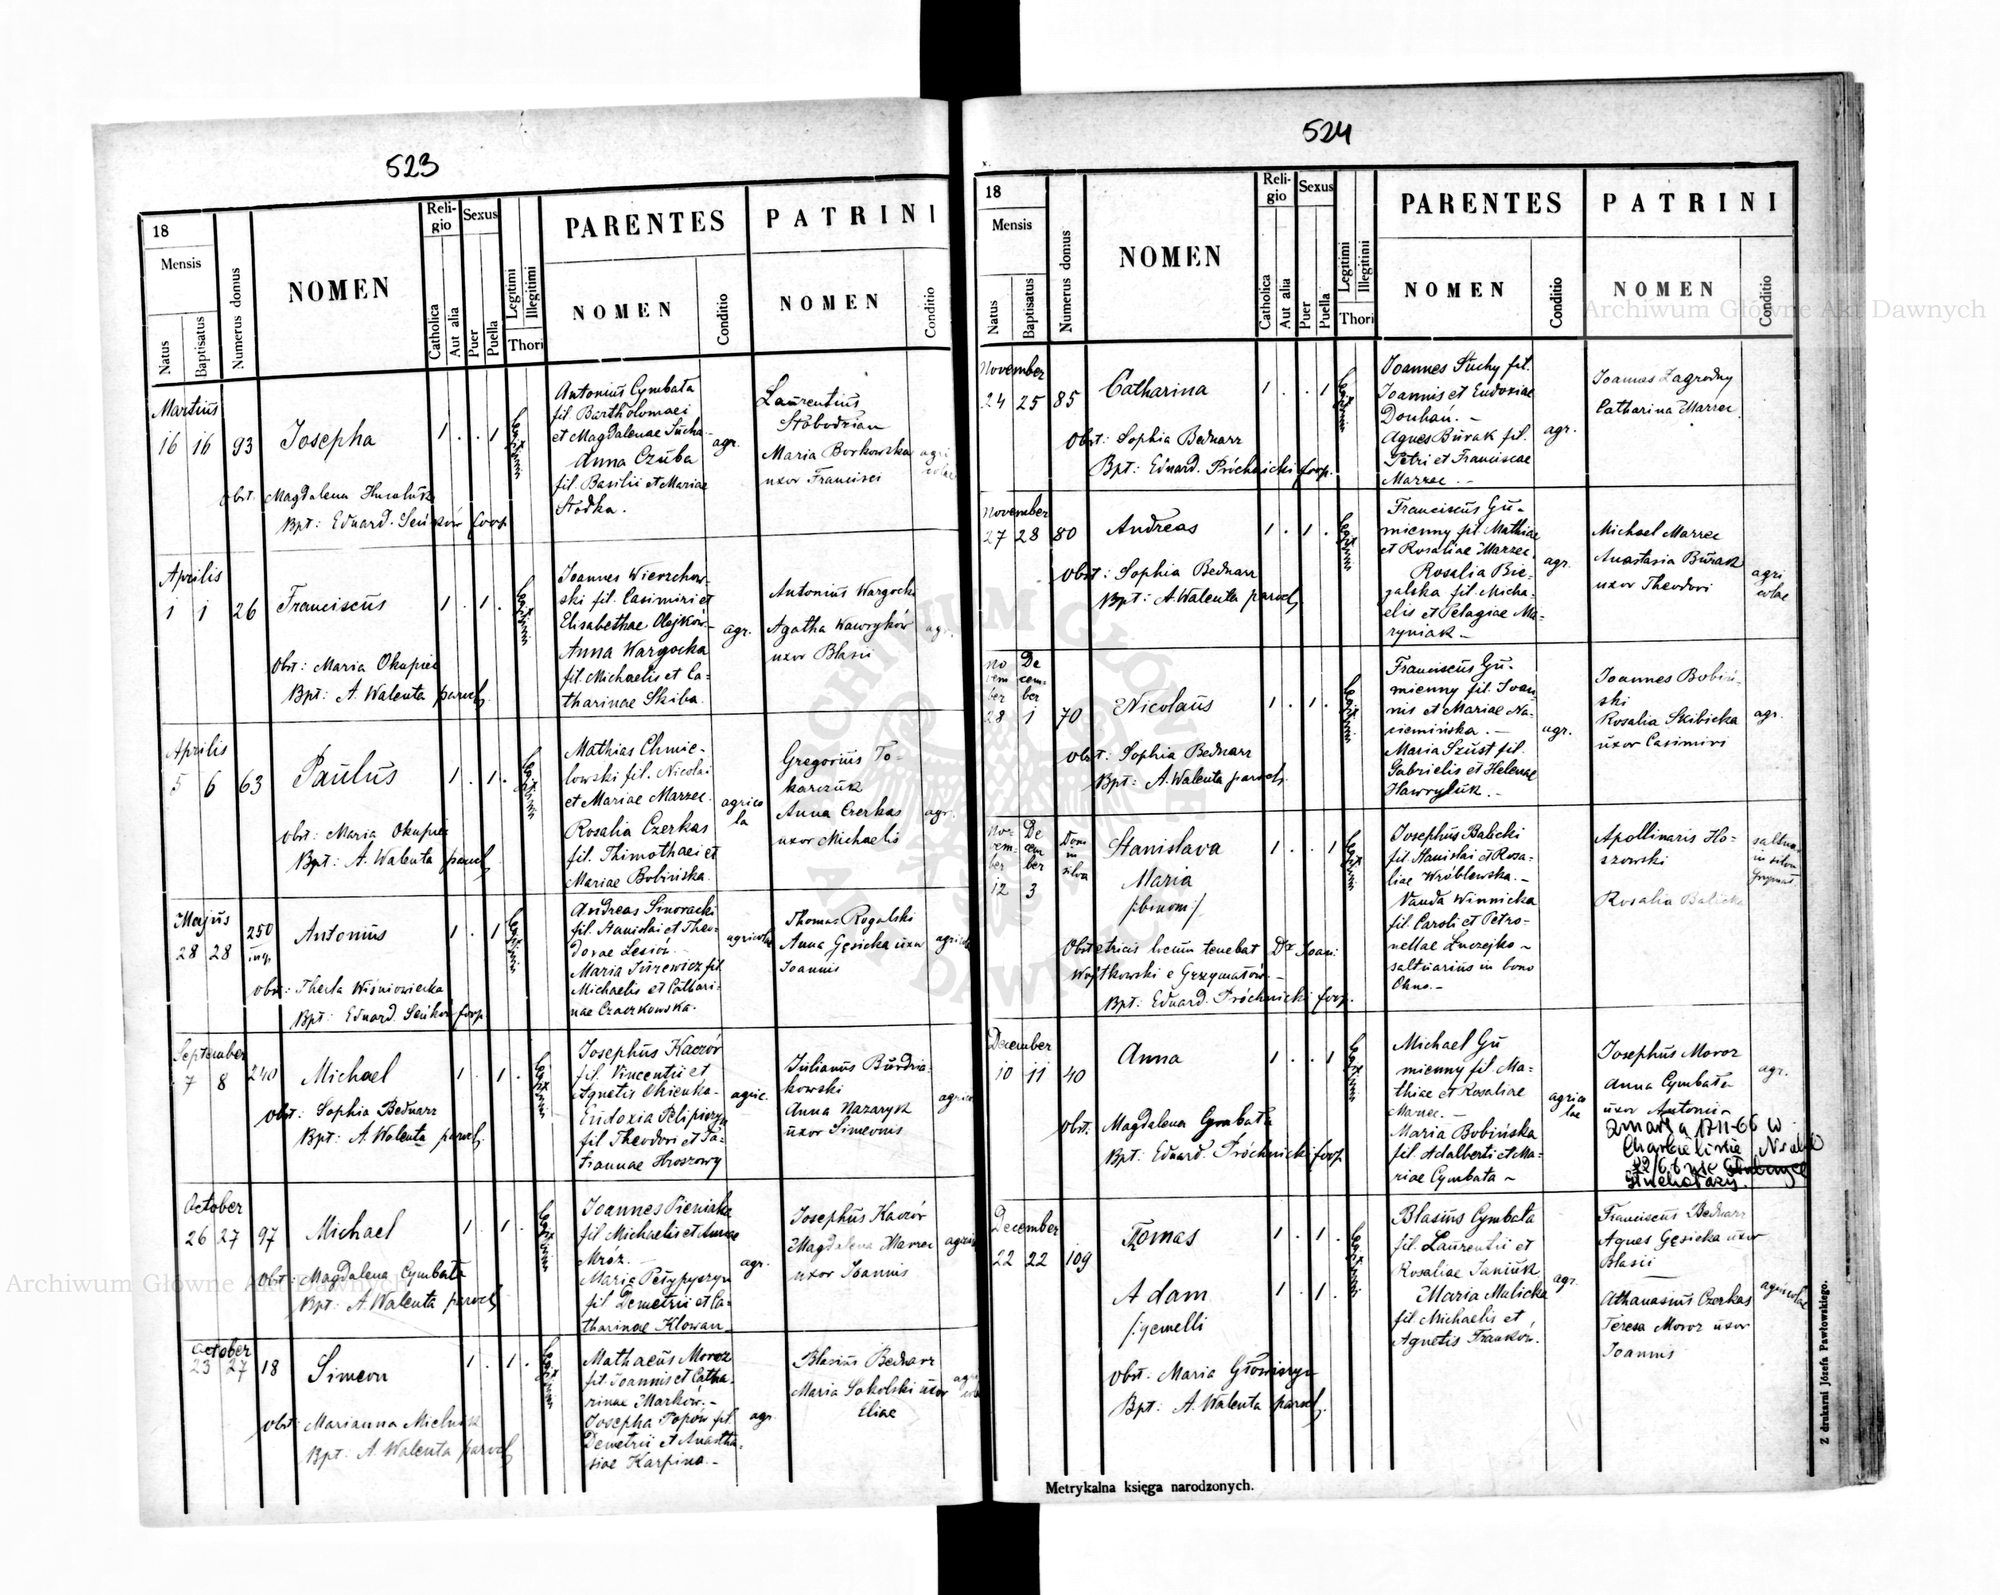 523
18
Mensis
Natus
Baptisatus
Numerus domus
NOMEN
Religio
Catholica
Aut alia
Sexus
Puer
Puella
Legitimi
Illegitimi
Thori
PARENTES
NOMEN
Conditio
PATRINI
NOMEN
Conditio
Martius
16 16 93 Josepha 1 . . 1
obst. Magdalena
Bpt: Eduard. Seńków Coop
Antonius Cymbała
fil. Bartholomaei
et Magdalenae Sucha
Anna Czuba
fil. Basilii et Mariae
Stodka.
agr.
Laurentius
Słobodzian
Maria Borkowska
uxor Francisci
agricolae
Aprilis
1 1 26 Franciscus 1 . 1 .
obst: Maria Okupiec
Bpt: A. Walenta paroch
Joannes Wierzchow-
ski fil. Casimiri et
Elisabethae Olejków-
Anna Wargocka
fil. Michaelis et Ca-
tharinae Skiba.
agr.
Antonius Wargocki
Agatha Wawryków
uxor Blasii
agr.
Aprilis
5 6 63 Paulus 1 . 1 .
obst: Maria Okupiec
Bpt: A. Walenta paroch
Mathias Chmie-
lowski fil. Nicolai
et Mariae Marzec.
Rosalia Czerkas
fil. Thimothaei et
Mariae Bobińska.
agrico
la
Gregorius To-
karczuk
Anna Czerkas
uxor Michaelis
agr.
Majus
28 28 250 Antonius 1 . 1
obst: Thecla Wiśniowiecka
Bpt: Eduard. Seńków Coop.
Andreas Smoracki
fil. Stanislai et Theo-
dorae Lesiów
Michaelis et Cathari-
nae Czaczkowska.
agricolae
Thomas Rogalski
Anna Gęsicka uxor
Joannis
September
7 8 240 Michael 1 . 1 .
obst: Sophia Bednarz
Bpt: A. Walenta paroch
Josephus Kaczór
fil. Vincentii et
Agnetis Okienka.
Eudoxia Pelipiszyn
fil Theodori et Pa-
trannae Hroszowy
agric.
Julianus Burdzia-
kowski
Anna Nazaryk
uxor Simeonis
October
26 27 97 Michael 1 . 1 .
obst: Magdalena Cymbała
Bpt: A. Walenta paroch
Joannes Pieniążka
fil Michaelis et Annae
Mróz.
fil Demetrii et Ca-
tharinae Klowan
agr.
Josephus Kaczór
Magdalena Marzec
uxor Joannis
October
23 27 18 Simeon 1 . 1 .
obst: Marianna Mielnik
Bpt: A. Walenta paroch
Mathaeus Moroz
fil. Joannis et Catha-
rinae Marków.-
Josepha Popów fil.
Demetrii et Anasta-
siae Karpina.-
agr.
Blasius Bednarz
Maria Sokolski uxor
Eliae
524
18
Mensis
Natus
Baptisatus
Numerus domus
NOMEN
Religio
Catholica
Aut alia
Sexus
Puer
Puella
Legitimi
Illegitimi
Thori
PARENTES
NOMEN
Conditio
PATRINI
NOMEN
Conditio
November
24 25 85 Catharina 1 . . 1
Obst: Sophia Bednarz
Bpt: Eduard. Próchnicki Coop.
Joannes Suchy fil.
Joannis et Eudoxiae
Douhań.-
Agnes Burak fil.
Petri et Franciscae
Marzec.-
agr.
Joannes Zagrodny
Catharina Marzec
November
27 28 80 Andreas 1 . 1 .
Obst: Sophia Bednarz
Bpt: A. Walenta paroch
Franciscus Gu-
mienny fil. Mathiae
et Rosaliae Marzec
Rosalia Bie-
galska fil. Micha-
elis et Pelagiae Ma-
ryniak-
agr.
Michael Marzec
Anastasia Burak
uxor Theodori
agri
colae
November
December
28 1 70 Nicolaus 1 . 1 .
obst: Sophia Bednarz
Bpt: A. Walenta paroch
Franciscus Gu-
mienny fil. Joan-
nis et Mariae Na-
ciemińska.-
Maria Szust fil.
Gabrielis et Helenae
Hawryluk.-
agr.
Joannes Bobiń-
ski
Rosalia Skibicka
uxor Casimiri
agr.
November
December
12 3
Dom
in
silva
Stanislava
Maria
/:binom:/
1 . . 1
Obstetricis locum tenebat Dr Joan.
Wojtkowski e Grzymałów.-
Bpt: Eduard. Próchnicki Coop.
Josephus Balicki
fil. Stanislai et Rosa-
liae Wróblewska.-
Vanda Winnicka
fil. Caroli et Petro-
nellae Luczejko-
saltuarius in bono
Okno.-
Apollinaris Ho-
szowski
Rosalia Balicka
December
10 11 40 Anna 1 . . 1
obst. Magdalena Cymbała
Bpt: Eduard. Próchnicki Coop
Michael Gu
mienny fil. Ma-
thiae et Rosaliae
Marzec.-
Maria Bobińska
fil. Adalberti et Ma-
riae Cymbała-
agrico
lae
Josephus Moroz
Anna Cymbała
uxor Antonii-
agr.
zmarła 17-11-66 w
December
22 22 109 Tomas 1 . 1 .
Adam 1 . 1 .
/:gemelli
obst. Maria Głowiszyn
Bpt: A. Walenta paroch
Blasius Cymbała
fil. Laurentii et
Rosaliae Janiuk
Maria Mulicka
fil. Michaelis et
Agnetis Franków.
agr.
Franciscus Bednarz
Agnes Gęsicka uxor
Blasii
Athanasius Czerkas
Teresa Moroz uxor
Joannis
agricolae
Metrykalna księga narodzonych.
Z drukarni Józefa Pawłowskiego.
Archiwum Główne Akt Dawnych
Archiwum Główne Akt Dawnych
ARCHIWUM GŁÓWNE AKT DAWNYCH